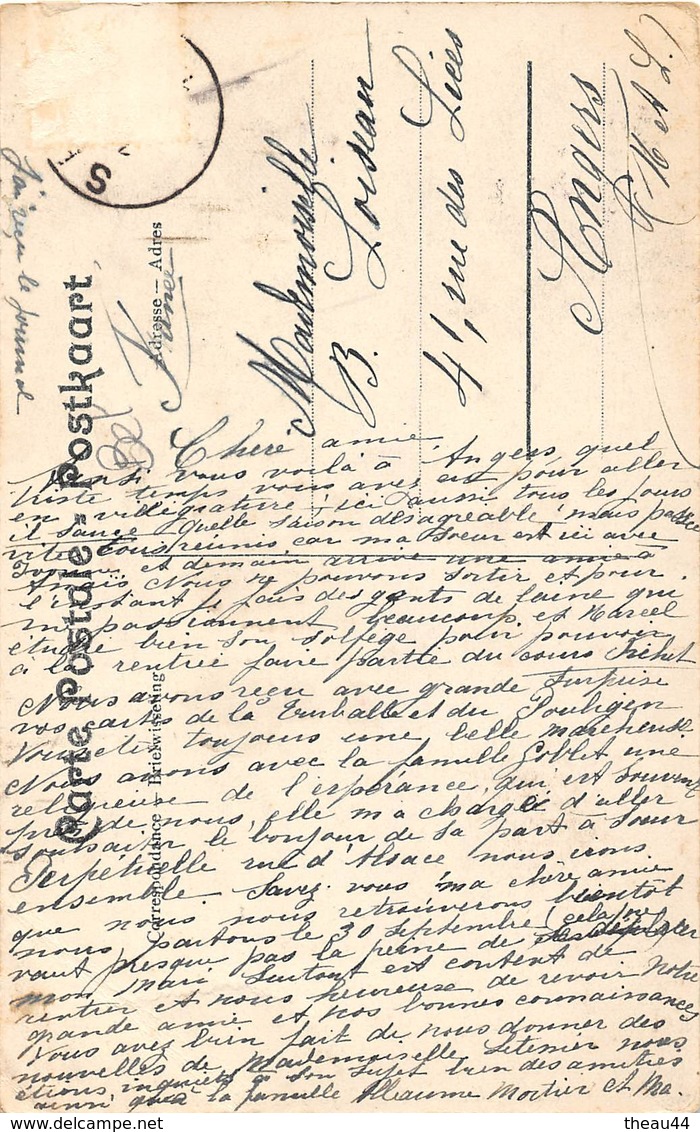 Carte Postale - Postkaart
Correspondance — Briefwisseling
Adresse — Adres
S
J'ai reçu le journal
France
Mademoiselle
B. Loiseau
41, rue des Lices
Angers
(M et L.)
Chère amie
Ainsi vous voilà à Angers, quel
triste temps vous avez eu pour aller
en villégiature ; ici aussi tous les jours
il sauce quelle saison désagréable mais passe
vite tous réunis car ma sœur est ici avec
Yvonne et demain arrive une amie à
Nous ne pouvons sortir et pour
l'instant je fais des gants de laine qui
me passionnent beaucoup et Marcel
étudie bien son solfège pour pouvoir
à la rentrée faire partie du cours
Nous avons reçu avec grande surprise
vos cartes de la Turballe et du Pouligen
Vous êtes toujours une belle marcheuse
Nous avons avec la famille Goblet une
religieuse de l'espérance, qui est souvent
près de nous, elle m'a chargée d'aller
souhaiter le bonjour de sa part à sœur
Perpétuelle rue d'Alsace nous irons
ensemble. Savez-vous ma chère amie
que nous nous retrouverons bientôt
nous partons le 30 septembre (cela ne
vaut presque pas la peine de
mon mari surtout est content de
rentrer et nous heureuse de revoir notre
grande amie et nos bonnes connaissances
Vous avez bien fait de nous donner des
nouvelles de Mademoiselle nous
étions inquiets à son sujet bien des amitiés
ainsi qu'à la famille Alleaume Mortier et Ma.
theau44
www.delcampe.net